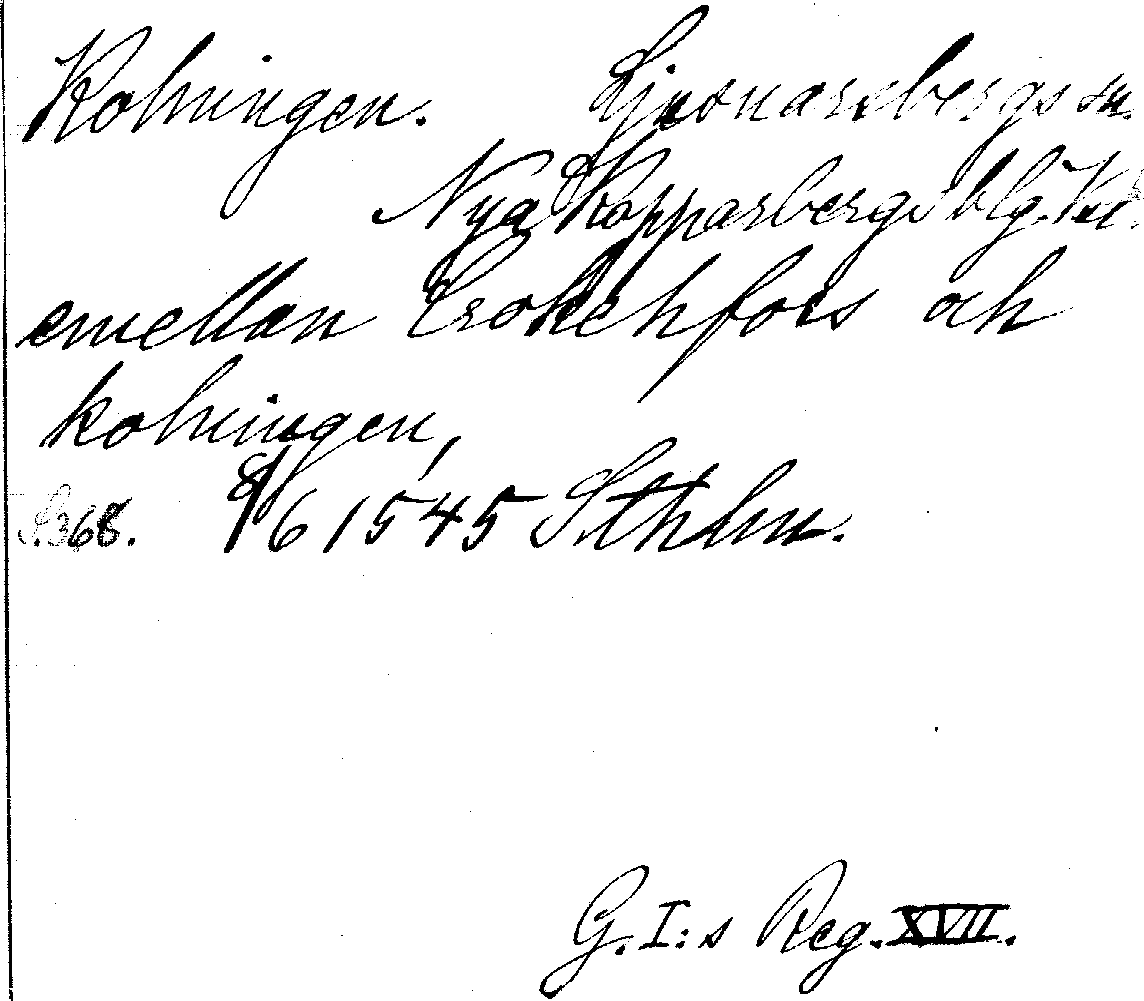 Kolningen. Ljusnarsbergs sn.
Nya Kopparbergs blg.
emellan Crokehfors och
kolningen,
S. 368. 8/6 1545 Sthlm.
G. I:s Reg. XVII.